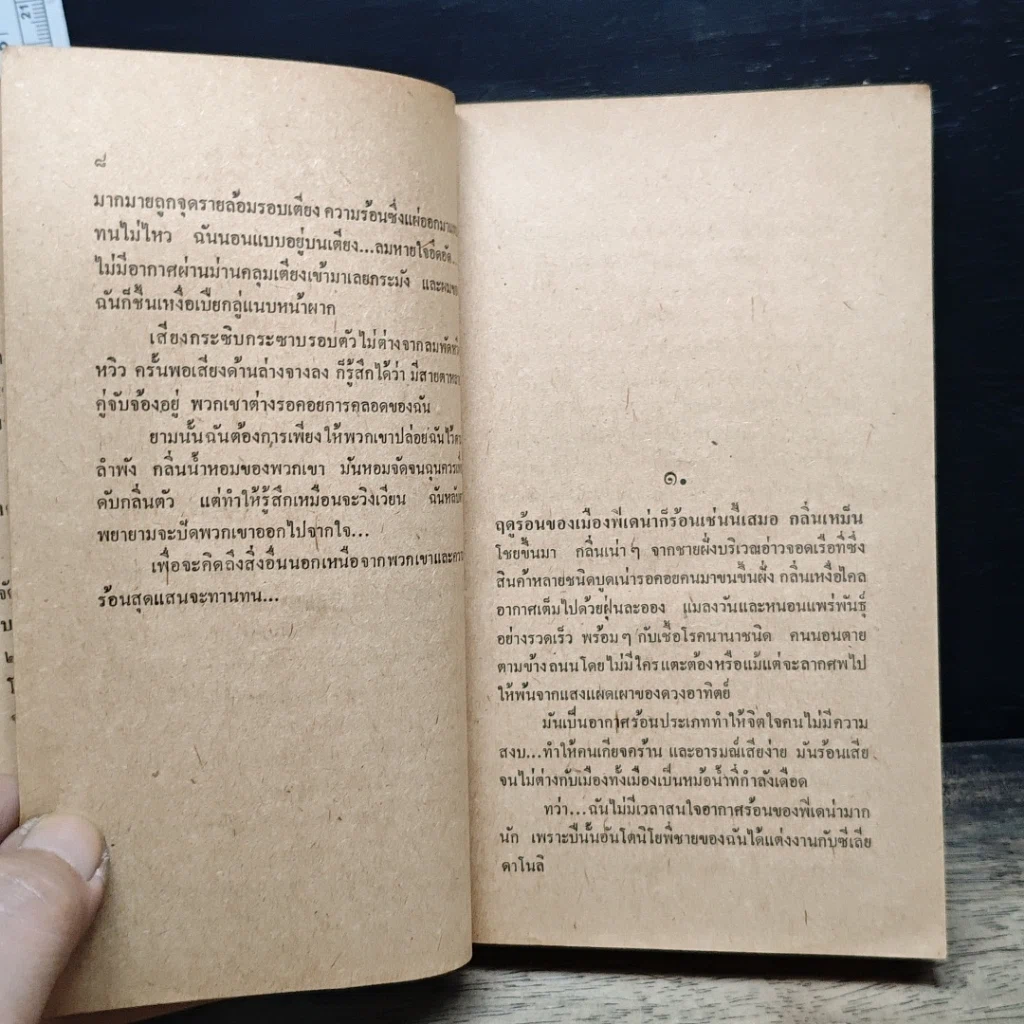 21
๘
มากมายถูกจุดรายล้อมรอบเตียง ความร้อนซึ่งแผ่ออกมา
ทนไม่ไหว ฉันนอนแบบอยู่บนเตียง...ลมหายใจอึดอัด...
ไม่มีอากาศผ่านม่านคลุมเตียงเข้ามาเลยกระมัง และผม
ฉันก็ชื้นเหงื่อเปียกลู่แนบหน้าผาก
เสียงกระซิบกระซาบรอบตัวไม่ต่างจากลมพัด
หวิว ครั้นพอเสียงด้านล่างจางลง ก็รู้สึกได้ว่า มีสายตา
คู่จับจ้องอยู่ พวกเขาต่างรอคอยการคลอดของฉัน
ยามนั้นฉันต้องการเพียงให้พวกเขาปล่อยฉันไว้
ลำพัง กลิ่นน้ำหอมของพวกเขา มันหอมจัดจนฉุน
ดับกลิ่นตัว แต่ทำให้รู้สึกเหมือนจะวิงเวียน ฉันหลับ
พยายามจะปัดพวกเขาออกไปจากใจ...
เพื่อจะคิดถึงสิ่งอื่นนอกเหนือจากพวกเขาและ
ร้อนสุดแสนจะทานทน...
๑.
ฤดูร้อนของเมืองฟีเดน่าก็ร้อนเช่นนี้เสมอ กลิ่นเหม็น
โชยขึ้นมา กลิ่นเน่าๆ จากชายฝั่งบริเวณอ่าวจอดเรือที่ซึ่ง
สินค้าหลายชนิดบูดเน่ารอคอยคนมาขนขึ้นฝั่ง กลิ่นเหงื่อไคล
อากาศเต็มไปด้วยฝุ่นละออง แมลงวันและหนอนแพร่พันธุ์
อย่างรวดเร็ว พร้อมๆ กับเชื้อโรคนานาชนิด คนนอนตาย
ตามข้างถนนโดยไม่มีใครแตะต้องหรือแม้แต่จะลากศพไป
ให้พ้นจากแสงแผดเผาของดวงอาทิตย์
มันเป็นอากาศร้อนประเภททำให้จิตใจคนไม่มีความ
สงบ...ทำให้คนเกียจคร้าน และอารมณ์เสียง่าย มันร้อนเสีย
จนไม่ต่างกับเมืองทั้งเมืองเป็นหม้อน้ำที่กำลังเดือด
ทว่า...ฉันไม่มีเวลาสนใจอากาศร้อนของฟีเดน่ามาก
นัก เพราะปีนั้นอันโตนิโยพี่ชายของฉันได้แต่งงานกับซีเลีย
ดาโนลิ